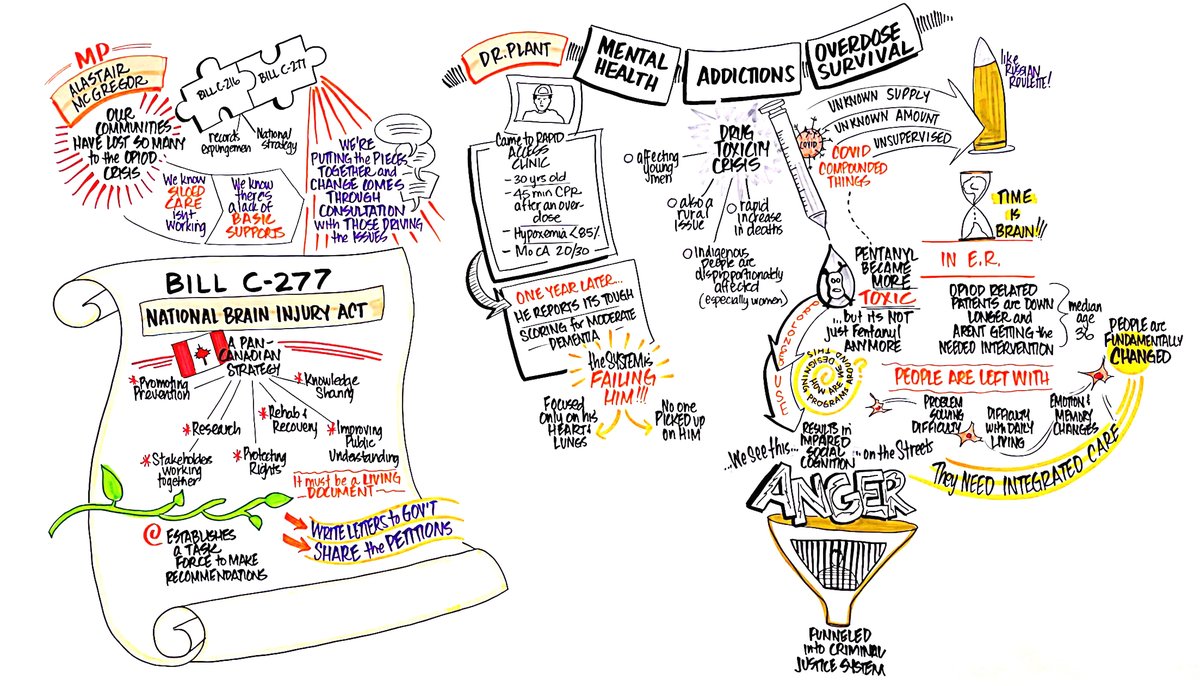 MP
ALASTAIR
McGREGOR
OUR
COMMUNITIES
HAVE LOST SO MANY
to the OPIOD
CRISIS
BILL C-216
BILL C-277
records
expungemen
National
strategy
We know
SILOED
CARE
isn't
working
We know
there's
a lack of
BASIC
SUPPORTS
WE'RE
PUTTING the PIECES
TOGETHER and
CHANGE COMES
THROUGH
CONSULTATION
with THOSE DRIVING
the ISSUES
BILL C-277
NATIONAL BRAIN INJURY ACT
A PAN-
CANADIAN
STRATEGY
Promoting
Prevention
Knowledge
Sharing
Research
Rehab &
Recovery
Improving
Public
Understanding
Stakeholders
Working
together
Protecting
Rights
It must be a LIVING
DOCUMENT
ESTABLISHES
a TASK
FORCE to MAKE
RECOMMENDATIONS
WRITE LETTERS to GOV'T
SHARE the PETITIONS
DR. PLANT
MENTAL
HEALTH
ADDICTIONS
OVERDOSE
SURVIVAL
Came to RAPID
ACCESS
CLINIC
- 30 yrs old
- 45 min CPR
after an over-
dose
- Hypoxemia <85%
- MoCA 20/30
ONE YEAR LATER...
HE REPORTS ITS TOUGH
SCORING for MODERATE
DEMENTIA
the SYSTEM is
FAILING
HIM!!!
FOCUSED
ONLY on his
HEART &
LUNGS
No one
PICKED UP
on HIM
DRUG
TOXICITY
CRISIS
affecting
young
men
also a
rural
issue
rapid
increase
in deaths
Indigenous
people are
disproportionably
affected
(especially women)
COVID
UNKNOWN SUPPLY
UNKNOWN AMOUNT
UNSUPERVISED
COVID
COMPOUNDED
THINGS
like
RUSSIAN
ROULETTE!
TIME
IS
BRAIN!!
FENTANYL
BECAME
MORE
TOXIC
...but its NOT
just Fentanyl
ANYMORE
IN E.R.
OPIOD RELATED
PATIENTS are DOWN
LONGER and
AREN'T GETTING the
NEEDED INTERVENTION
median
age
36
PEOPLE are
FUNDAMENTALLY
CHANGED
PROLONGED USE
HOW ARE WE DESIGNING
PROGRAMS AROUND THIS
?
PEOPLE ARE LEFT WITH
PROBLEM
SOLVING
DIFFICULTY
DIFFICULTY
with DAILY
LIVING
EMOTION &
MEMORY
CHANGES
They NEED INTEGRATED CARE
RESULTS in
IMPARED
SOCIAL
COGNITION
...We See this...
...on the Streets
ANGER
FUNNELED
into CRIMINAL
JUSTICE SYSTEM